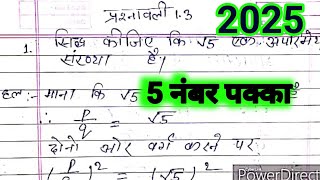 प्रश्नावली 1.3
2025
1. सिद्ध कीजिए कि √5 एक अपरिमेय
संख्या है।
हल:- माना कि √5
5 नंबर पक्का
∴ p/q = √5
दोनो ओर वर्ग करने पर
(p/q)² = (√5)²
PowerDirect